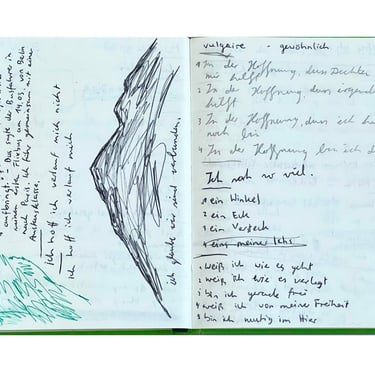 aufbringt." Das sagte der Busfahrer in
meinem ersten Flixbus am 14.03. von Berlin
nach Paris. Ich fuhr gemeinsam mit einer
Austauschklasse.
Ich hoff ich verlauf mich nicht
Ich hoff ich verlauf mich
ich glaube wir sind verbunden.
vulgaire - gewöhnlich
1 In der Hoffnung, dass
mir hilft
2 In der Hoffnung, dass
hilft
3 In der Hoffnung, dass ich
noch bin
4 In der Hoffnung bin ich
Ich noch so viel.
1 ein Winkel
2 ein Eck
3 ein Versteck
4 eins meiner Ichs
1 weiß ich wie es geht
2 weiß ich wie es verlegt
3 bin ich gerade frei
4 weiß ich von meiner Freiheit
5 bin ich mutig im Hier